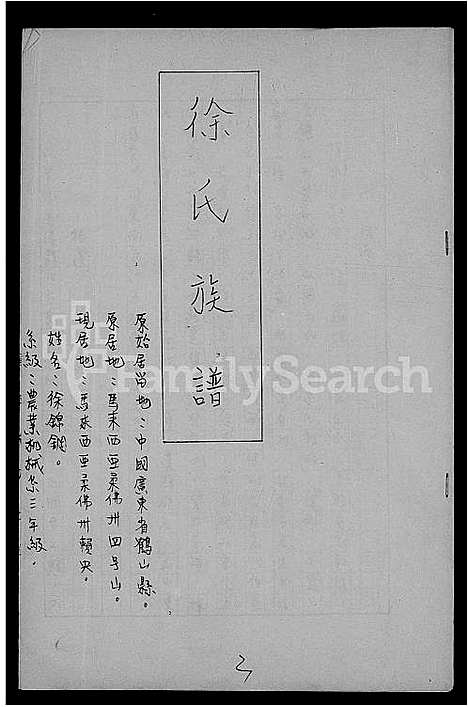 徐氏族譜
原始居留地：中國廣東省鶴山縣。
原居地：馬來西亞柔佛州四号山。
現居地：馬來西亞柔佛州賴央。
姓名：徐錦鋼。
系級：農業机械系三年級。
FamilySearch